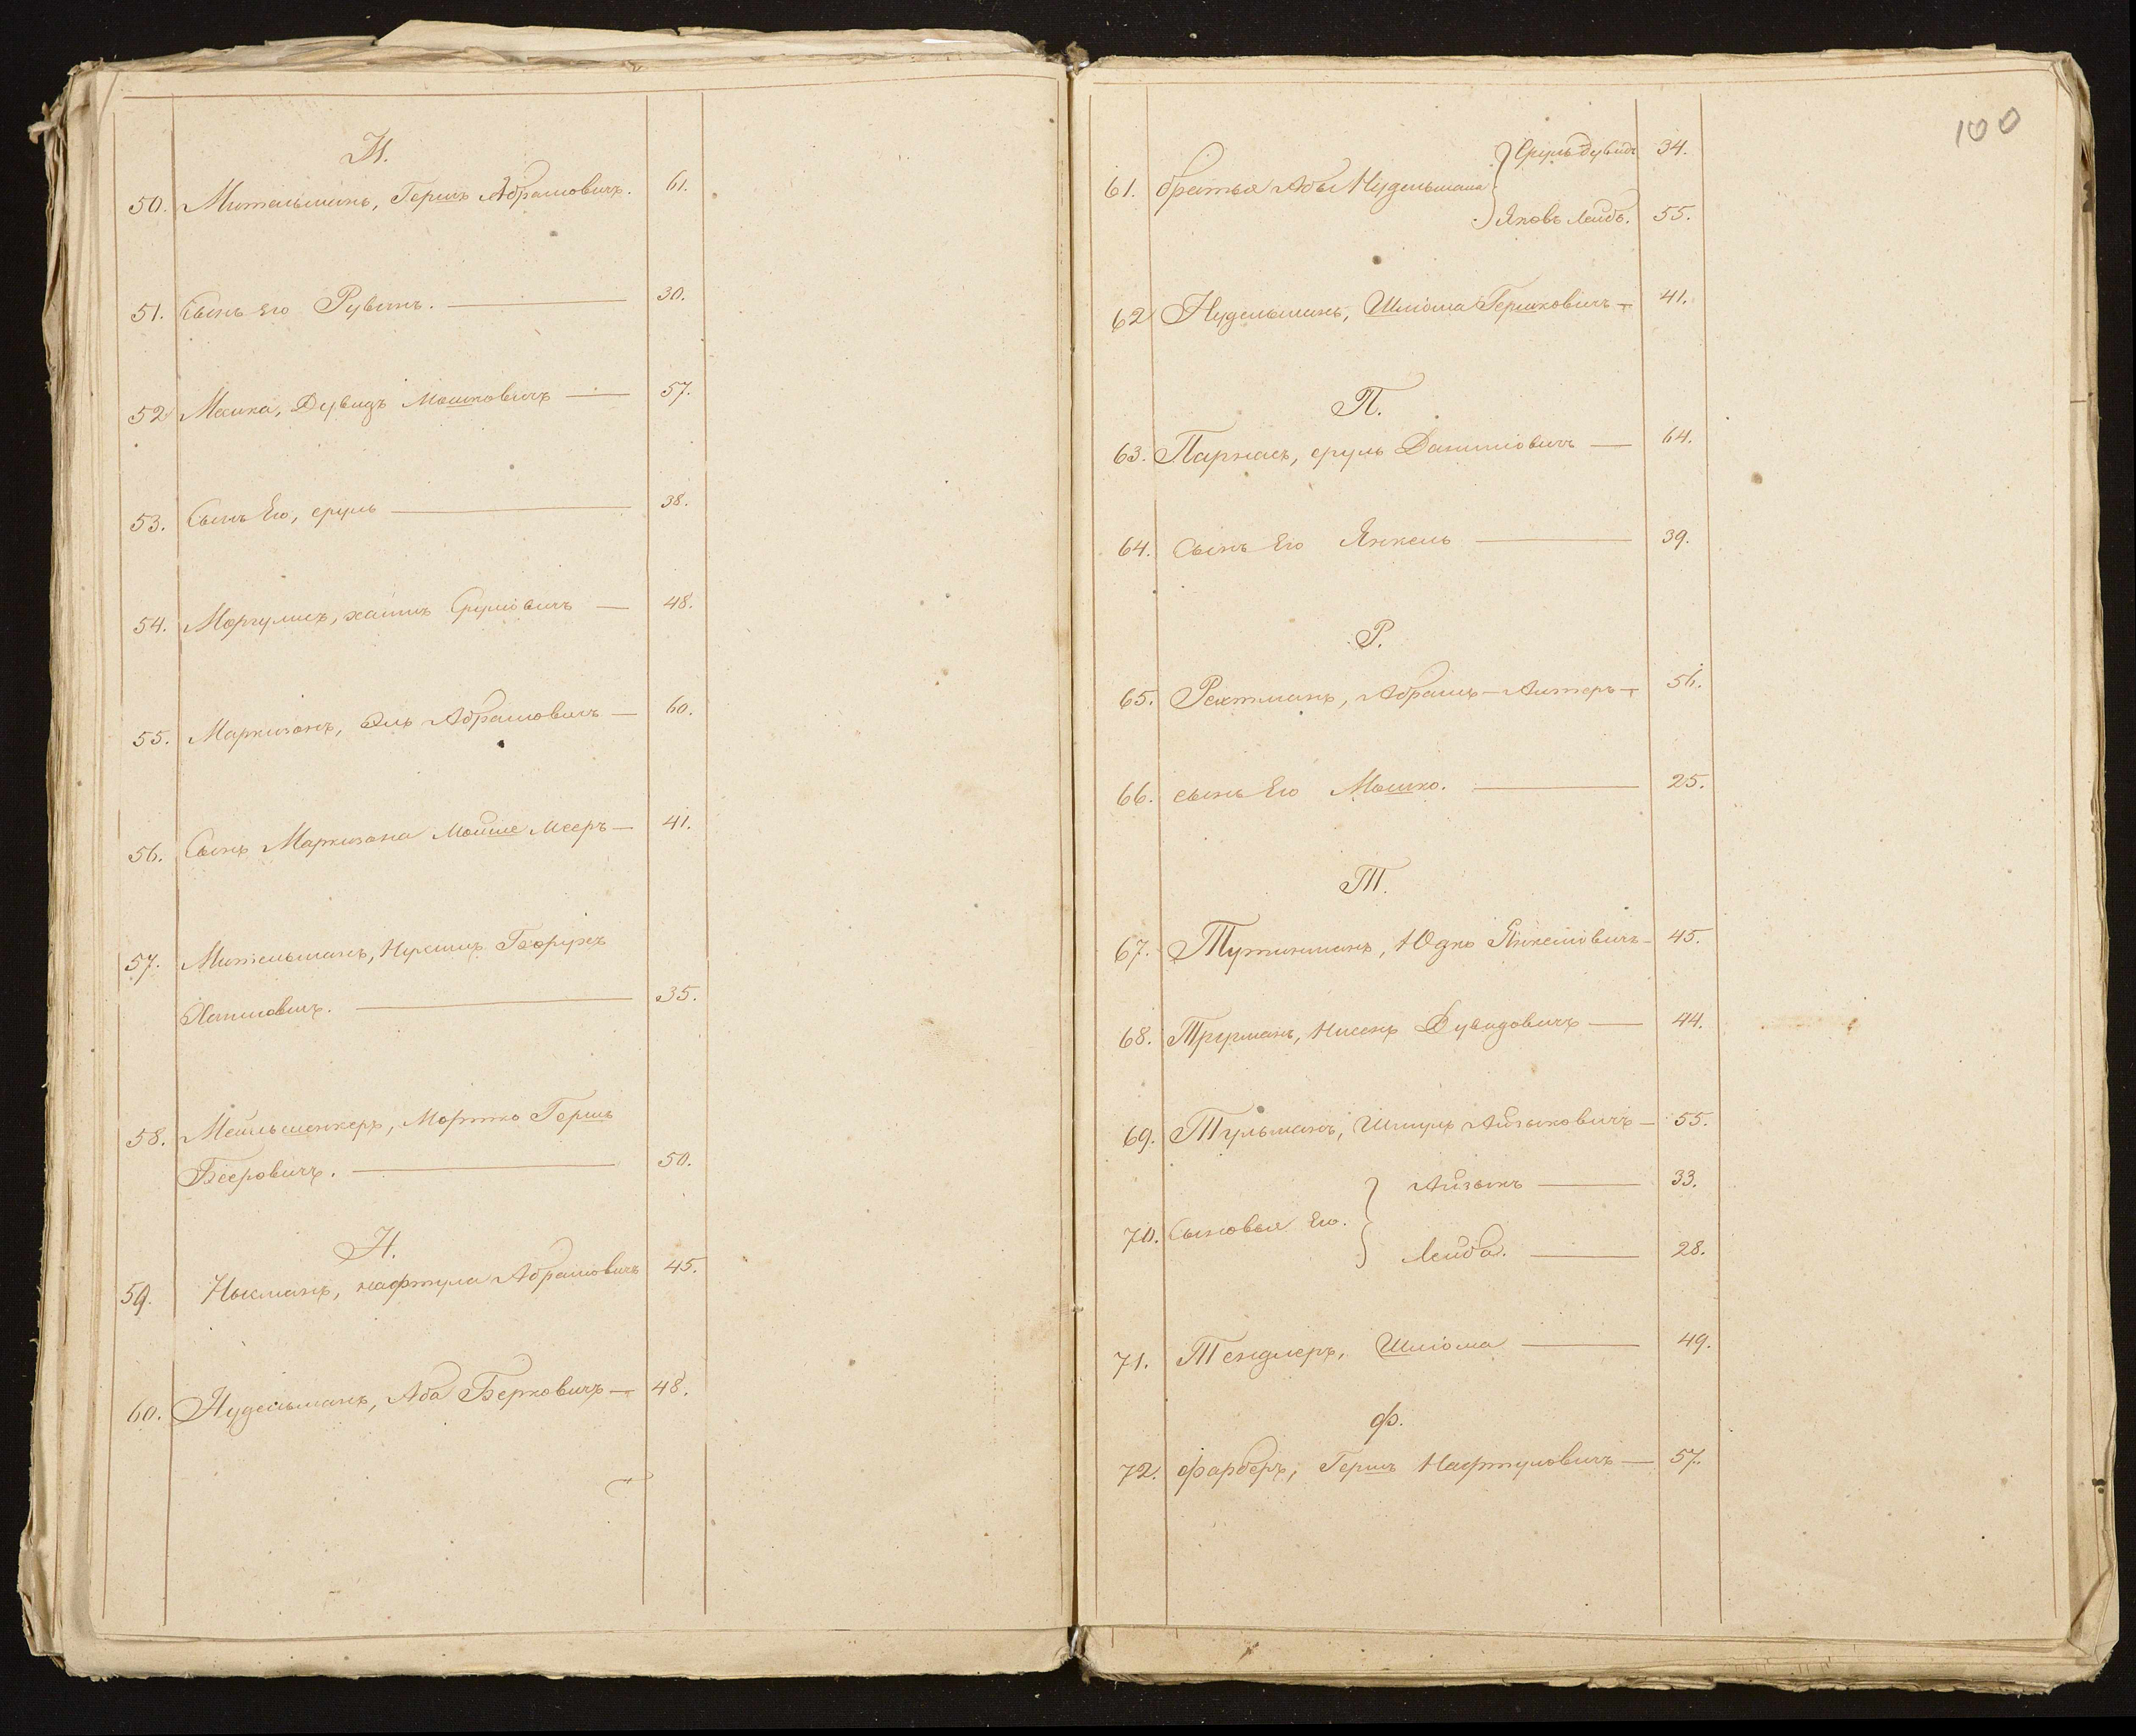 М.
50. Мительманъ, Гершъ Абрамовичъ. 61.
51. Сынъ его Рувинъ. 30.
52 Машка, Дувидъ Мошковичъ 57.
53. Сынъ Его, сруль 38.
54. Моргулисъ, хаимъ Срулiовичъ 48.
55. Маркизонъ, Эль Абрамовичъ 60.
56. Сынъ Маркизона Мойше Мееръ 41.
57. Мительманъ, Нухимъ Борухъ
Хаимовичъ. 35.
58. Мейльшенкеръ, Мортко Гершъ
Бееровичъ. 50.
Н.
59. Нысманъ, нафтула Абрамовичъ 45.
60. Нудельманъ, Аба Берковичъ 48.
100
61. братья Абы Нудельмана { Сруль Дувидъ 34.
Яковъ Лейбъ. 55.
62 Нудельманъ, Шлiома Гершковичъ 41.
П.
63. Парнасъ, сруль Данилiовичъ 64.
64. Сынъ Его Янкель 39.
Р.
65. Рехтманъ, Абрамъ-Алтеръ 56.
66. сынъ Его Мошко. 25.
Т.
67. Тутинманъ, Юдко Янкелiовичъ 45.
68. Трурманъ, Нисенъ Дувидовичъ 44.
69. Тульманъ, Шмуль Айзыковичъ 55.
70. Сыновья Его. } Айзыкъ 33.
Лейба. 28.
71. Тендлеръ, Шлiома 49.
Ф.
72. Фарберъ, Гершъ Нафтуловичъ 57.